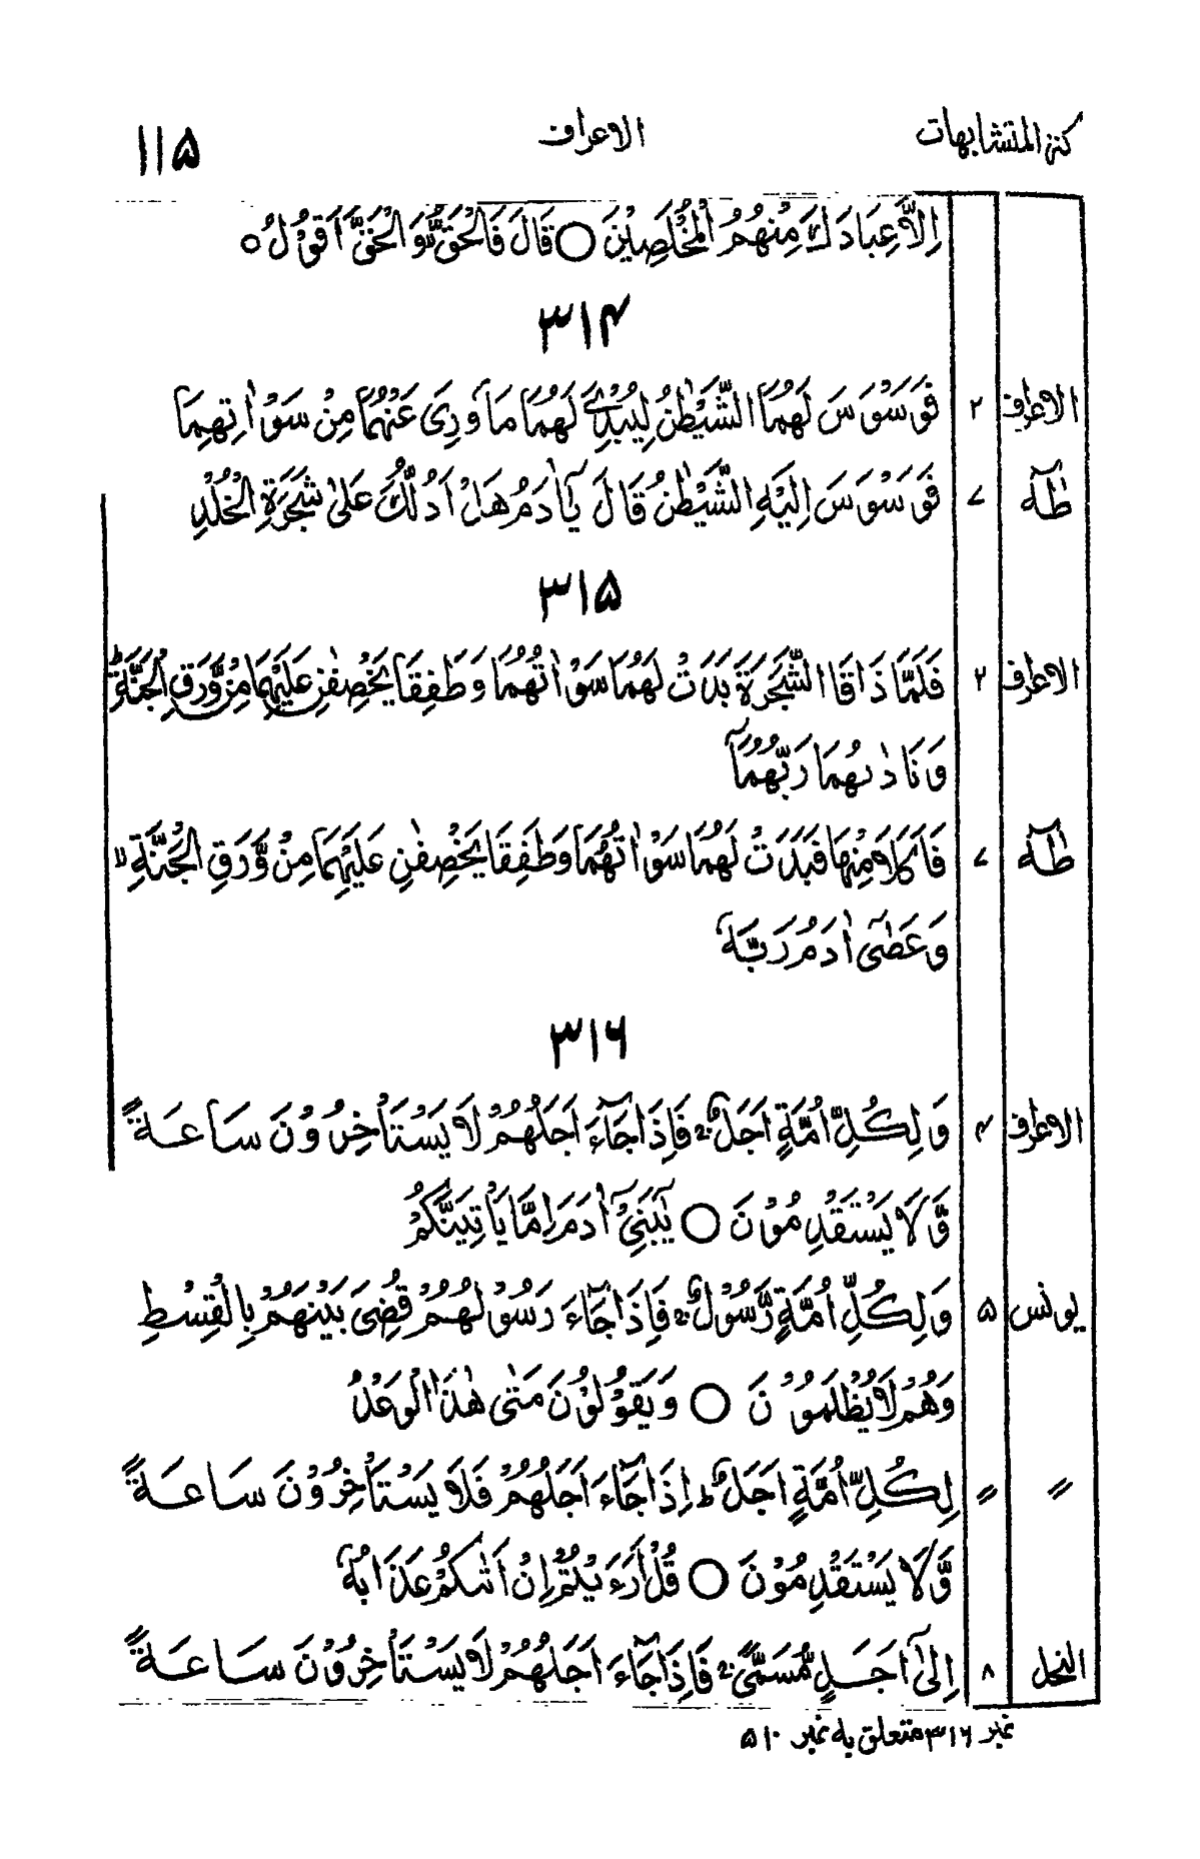 كنز المتشابهات الاعراف ۱۱۵
اِلَّا عِبَادَكَ مِنْهُمُ الْمُخْلَصِيْنَ ○ قَالَ فَالْحَقُّ وَالْحَقَّ اَقُوْلُ ○
۳۱۴
الاعراف ۲ فَوَسْوَسَ لَهُمَا الشَّيْطٰنُ لِيُبْدِيَ لَهُمَا مَا وٗرِيَ عَنْهُمَا مِنْ سَوْاٰتِهِمَا
طٰهٰ ۷ فَوَسْوَسَ اِلَيْهِ الشَّيْطٰنُ قَالَ يٰٓاٰدَمُ هَلْ اَدُلُّكَ عَلٰى شَجَرَةِ الْخُلْدِ
۳۱۵
الاعراف ۲ فَلَمَّا ذَاقَا الشَّجَرَةَ بَدَتْ لَهُمَا سَوْاٰتُهُمَا وَطَفِقَا يَخْصِفٰنِ عَلَيْهِمَا مِنْ وَّرَقِ الْجَنَّةِ ؕ
وَنَادٰىهُمَا رَبُّهُمَآ
طٰهٰ ۷ فَاَكَلَا مِنْهَا فَبَدَتْ لَهُمَا سَوْاٰتُهُمَا وَطَفِقَا يَخْصِفٰنِ عَلَيْهِمَا مِنْ وَّرَقِ الْجَنَّةِ
وَعَصٰٓى اٰدَمُ رَبَّهٗ
۳۱۶
الاعراف ۴ وَلِكُلِّ اُمَّةٍ اَجَلٌ ۚ فَاِذَا جَآءَ اَجَلُهُمْ لَا يَسْتَاْخِرُوْنَ سَاعَةً
وَّلَا يَسْتَقْدِمُوْنَ ○ يٰبَنِيْٓ اٰدَمَ اِمَّا يَاْتِيَنَّكُمْ
يونس ۵ وَلِكُلِّ اُمَّةٍ رَّسُوْلٌ ۚ فَاِذَا جَآءَ رَسُوْلُهُمْ قُضِيَ بَيْنَهُمْ بِالْقِسْطِ
وَهُمْ لَا يُظْلَمُوْنَ ○ وَيَقُوْلُوْنَ مَتٰى هٰذَا الْوَعْدُ
〃 〃 لِكُلِّ اُمَّةٍ اَجَلٌ ؕ اِذَا جَآءَ اَجَلُهُمْ فَلَا يَسْتَاْخِرُوْنَ سَاعَةً
وَّلَا يَسْتَقْدِمُوْنَ ○ قُلْ اَرَءَيْتُمْ اِنْ اَتٰىكُمْ عَذَابُهٗ
النحل ۸ اِلٰٓى اَجَلٍ مُّسَمًّى ۚ فَاِذَا جَآءَ اَجَلُهُمْ لَا يَسْتَاْخِرُوْنَ سَاعَةً
نمبر ۳۱۶ متعلق به نمبر ۵۱۰